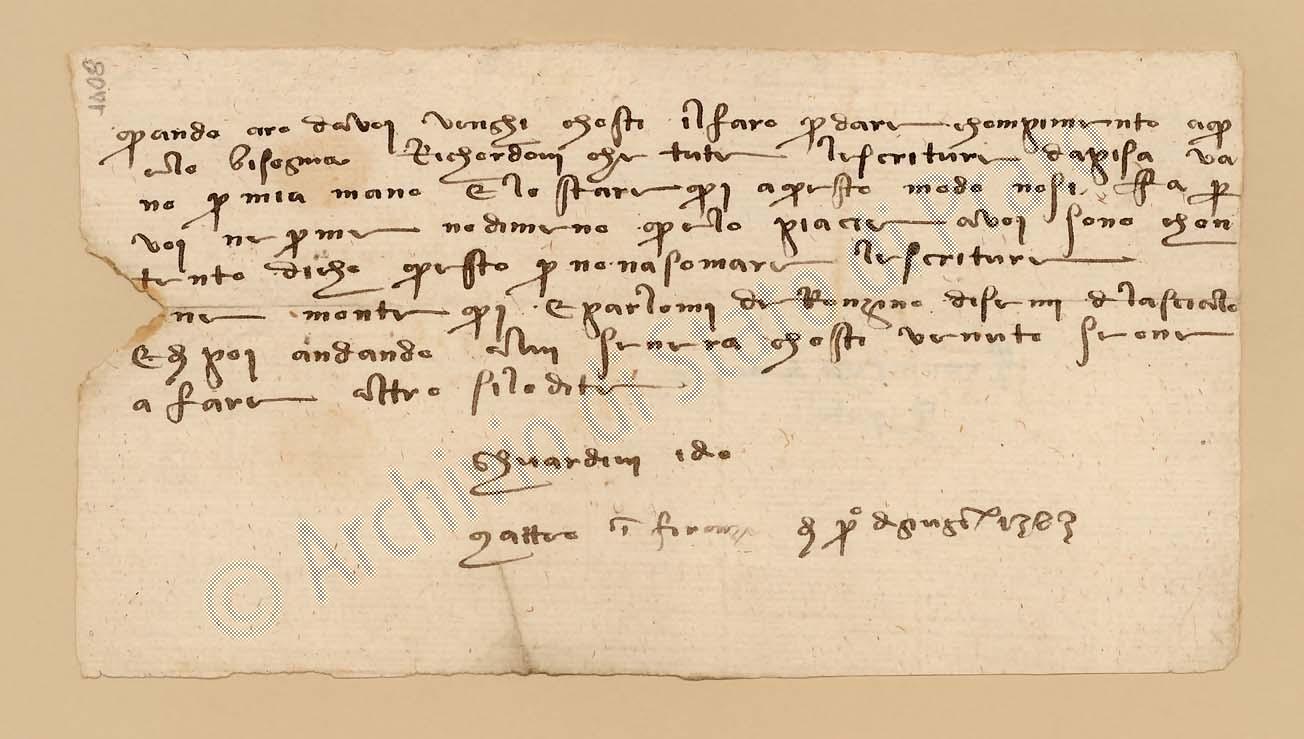 1408
quando aro da voi venghi chosti il faro per dare chompimento a que
llo bisognia Richordovi che tute le scriture da pisa va
no per mia mano E lo stare qui a questo modo no si fa per
voi ne per me nodimeno quelo piacie a voi sono chon
tento dicho questo per no nasomare le scriture
ne monte qui E parlomi de Ronzino disemi dlasciallo
E di poi andando a lui se nera chosti venuto se one
a fare altro si lo dite
Ghuardivi idio
Matteo in firenze di po dgugo 1383
© Archivio di Stato di Prato